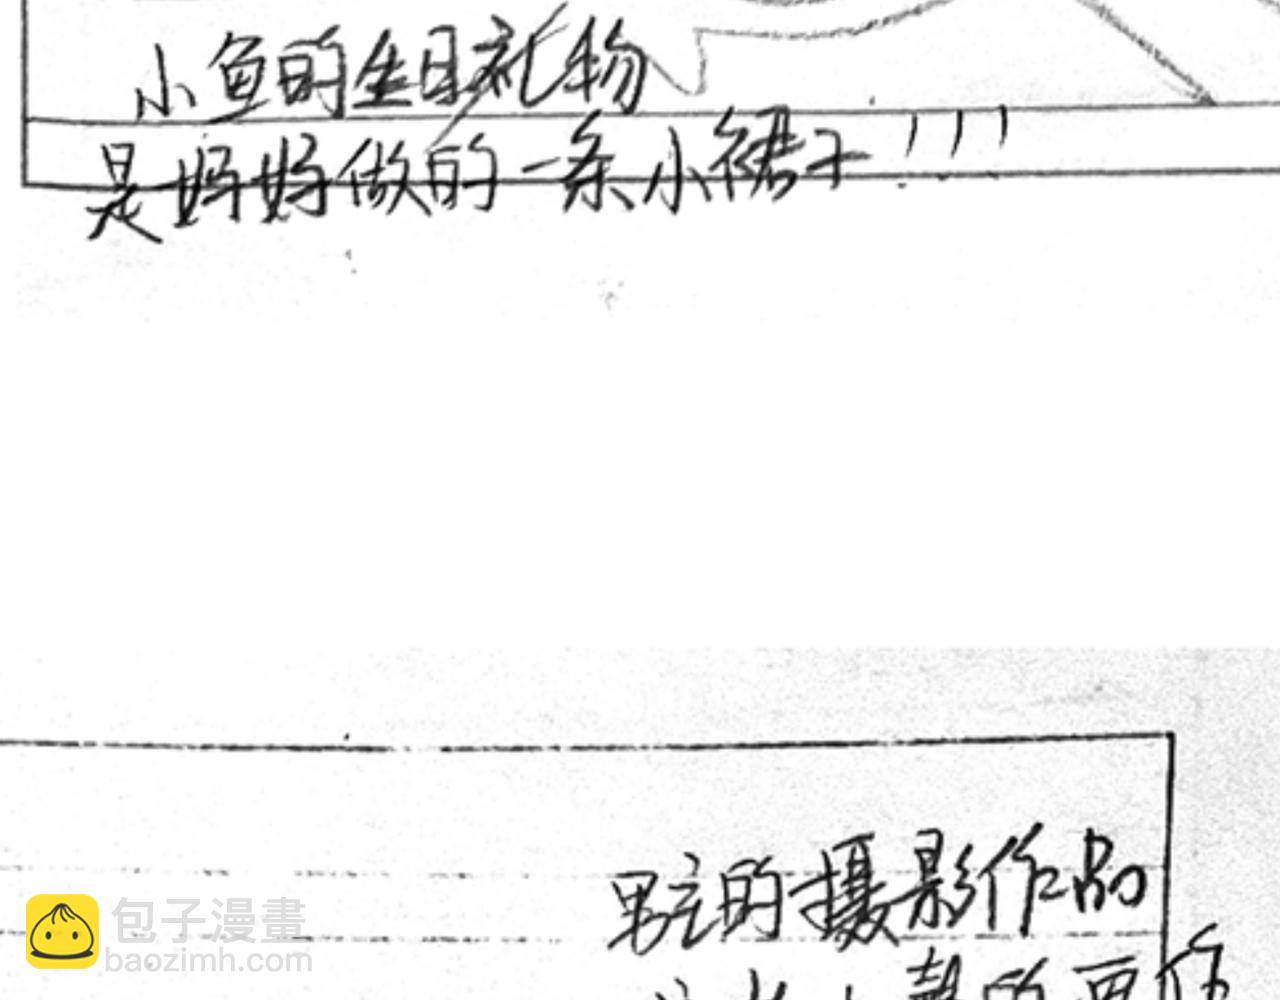 小鱼的生日礼物
是妈妈做的一条小裙子!!!
男主的摄影作品
包子漫畫
baozimh.com